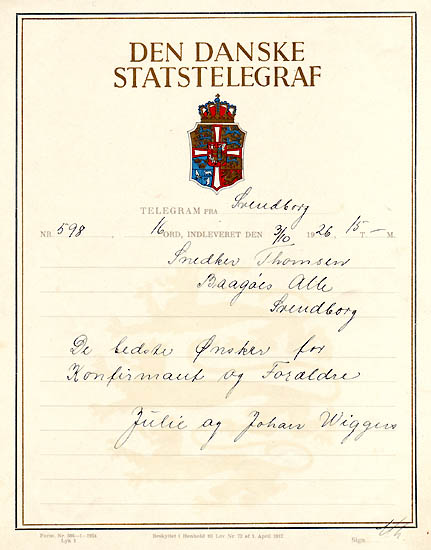 DEN DANSKE
STATSTELEGRAF
TELEGRAM FRA Svendborg
NR. 598 16 ORD, INDLEVERET DEN 3/10 1926 15 T. — M.
Snedker Thomsen
Baagøes Alle
Svendborg
De bedste Ønsker for
Konfirmant og Forældre
Julie og Johan Wiggers
Form. Nr. 984—1—1924 Beskyttet i Henhold til Lov Nr. 72 af 1. April 1917. Sign.
Lyk 1